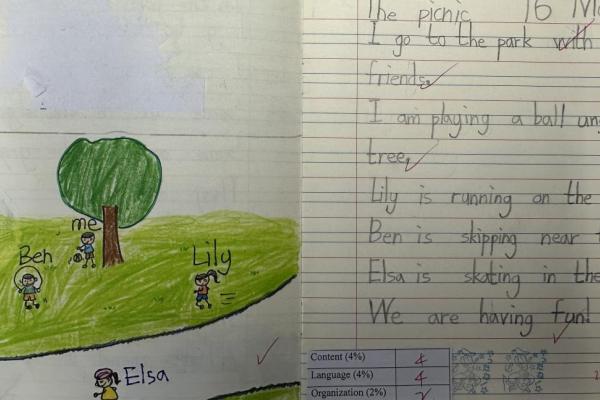 The picnic 16
I go to the park with
friends.
I am playing a ball
tree.
Lily is running on the
Ben is skipping near
Elsa is skating in the
We are having fun!
me
Ben
Lily
Elsa
Content (4%) 4
Language (4%) 4
Organization (2%)